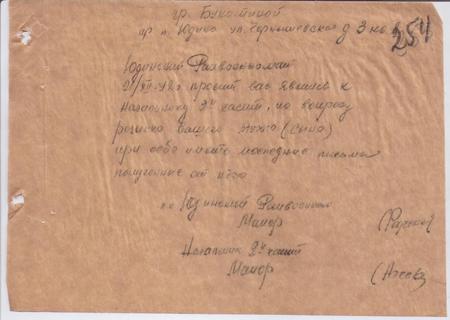 гр. Букатиной
гр п. Юдино ул. Чернышевского д 3-кв
254
Юдинский Райвоенкомат
21/XII-42г просит вас явиться к
Начальнику 2й части, по вопросу
розыска вашего мужа (сына)
при себе имейте последние письма
полученные от него
Юдинский Райвоенком
Майор
Начальник 2й части
Майор